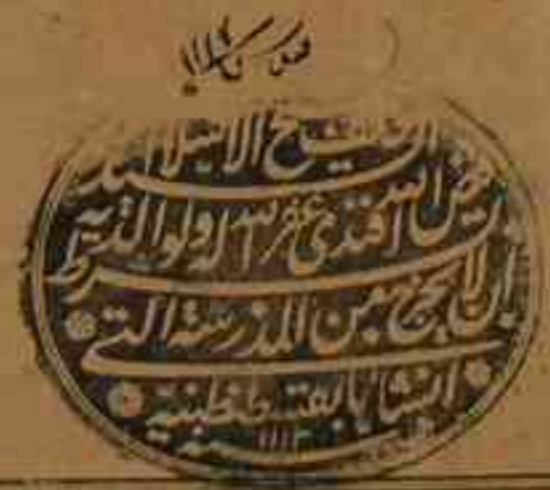 شيخ الاسلام السيد
فيض الله افندى غفر الله له ولوالديه
بشرط
ان لا يخرج من المدرسة التى
انشاها بقسطنطينية
سنة ١١١٣